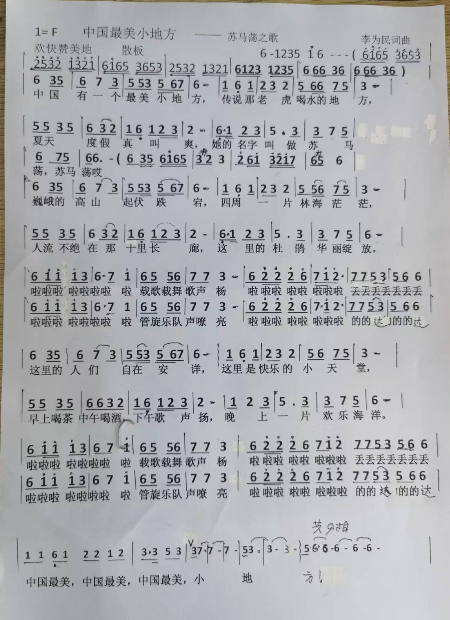 1= F 中国最美小地方 —— 苏马荡之歌 李为民词曲
欢快赞美地 散板 6 -1235 i6 --- (6165 3653
2532 1321 3653 2532 1321 6123 1235 666 36 666 36 )
6 35 6 7 3 5 53 5 67 6 - 1 6 1 2 3 2 5 56 7 5 3 -
中国 有一个最美小地方，传说那老虎喝水的地方，
5 5 35 6 32 16 12 3 2 - 6·1 23 5 . 3 2 7 5
夏天 度假真叫爽，她的名字叫做苏马
6 75 66. - ( 6 35 6165 3 2 3 2 261 3217 65 6
荡，苏马荡哎
6 35 6 7 3 5 53 5 67 6 - 1 6 1 2 3 2 5 56 7 5 3 -
巍峨的高山起伏跌宕，四周一片林海茫茫，
5 5 35 6 32 16 12 3 2 - 6·1 2 3 5 . 3 2 7 5 6 -
人流不绝在那十里长廊，这里的杜鹃华丽绽放。
6 i i i i3 6·7 i 65 56 7 7 3 - 6 2 2 2 2 6 7 i2· 7 7 5 3 5 6 6
啦啦啦 啦啦啦啦 啦 载歌载舞歌声扬 啦啦啦啦 啦啦啦啦 丢丢丢丢丢丢丢
啦啦啦 啦啦啦啦 啦 管旋乐队声嘹亮 啦啦啦啦 啦啦啦啦
6 35 6 7 3 5 53 5 67 6 - 1 6 1 2 3 2 5 6 7 5 3 -
这里的人们自在安详，这里是快乐的小天堂，
5 5 35 6632 16 12 3 2 - 1 2 5 . 3 2 7 5 6 -
早上喝茶 中午喝酒，下午歌声扬，晚上一片欢乐海洋。
6 i i i i3 6·7 i 65 56 7 7 3 - 6 2 2 2 2 6 7 i2 7 7 5 3 5 6 6
啦啦啦 啦啦啦啦 啦 载歌载舞歌声扬 啦啦啦啦 啦啦啦啦 丢丢丢丢丢丢丢
啦啦啦 啦啦啦啦 啦 管旋乐队声嘹亮 啦啦啦啦 啦啦啦啦 的的达的的达
1 1 6 1 2 2 1 2 3·3 5 3 37· 7 - 7 - 53 . 3 - 3 - 56·6 - 6 - 6 -
中国最美，中国最美，中国最美，小 地 方